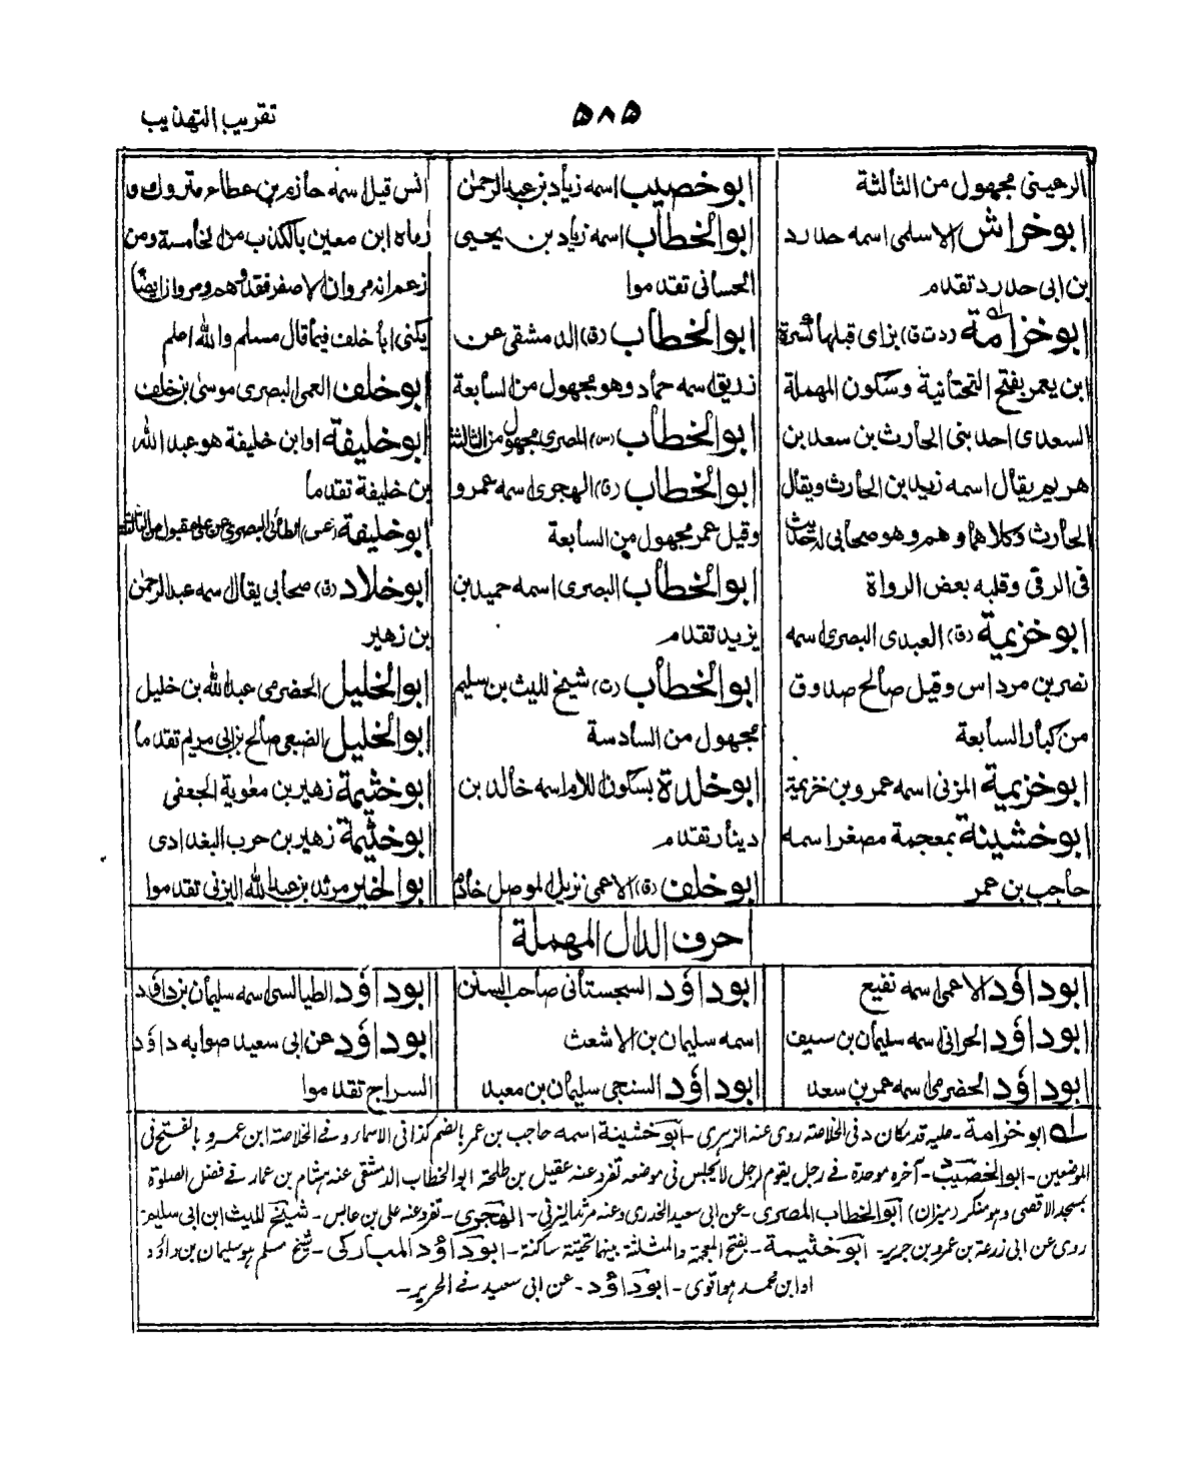 تقريب التهذيب
۵۸۵
الرعينى مجهول من الثالثة
ابوخراش الاسلمى اسمه حدرد
بن ابى حدرد تقدم
ابوخزامة (دت ق) بزاى قبلها كسرة
ابن يعمر بفتح التحتانية وسكون المهملة
السعدى احد بنى الحارث بن سعد بن
هريم يقال اسمه زيد بن الحارث ويقال
الحارث وكلاهما وهم وهو صحابى له حديث
فى الرقى وقلبه بعض الرواة
ابوخزيمة (ق) العبدى البصرى اسمه
نصر بن مرداس وقيل صالح صدوق
من كبار السابعة
ابوخزيمة المزنى اسمه عمرو بن خزيمة
ابوخشينة بمعجمة مصغر اسمه
حاجب بن عمر
ابوخصيب اسمه زياد بن عبد الرحمن
ابوالخطاب اسمه زياد بن يحيى
الحسانى تقدموا
ابوالخطاب (ق) الدمشقى عن
زريق اسمه حماد وهو مجهول من السابعة
ابوالخطاب (س) المصرى مجهول من الثالثة
ابوالخطاب (ق) الهجرى اسمه عمرو
وقيل عمر مجهول من السابعة
ابوالخطاب البصرى اسمه حميد بن
يزيد تقدم
ابوالخطاب (ت) شيخ لليث بن سليم
مجهول من السادسة
ابوخلدة بسكون اللام اسمه خالد بن
دينار تقدم
ابوخلف (ق) الاعمى نزيل الموصل خادم
انس قيل اسمه حازم بن عطاء متروك و
رماه ابن معين بالكذب من الخامسة ومن
زعم انه مروان الاصفر فقد وهم ومروان ايضا
يكنى ابا خلف فيما قال مسلم والله اعلم
ابوخلف العمى البصرى موسى بن خلف
ابوخليفة او ابن خليفة هو عبد الله
بن خليفة تقدما
ابوخليفة (عس) الطائى البصرى عن على مقبول من الثالثة
ابوخلاد (ق) صحابى يقال اسمه عبد الرحمن
بن زهير
ابوالخليل الحضرمى عبد الله بن خليل
ابوالخليل الضبعى صالح بن ابى مريم تقدما
ابوخثيمة زهير بن معوية الجعفى
ابوخثيمة زهير بن حرب البغدادى
ابوالخير مرثد بن عبد الله اليزنى تقدموا
حرف الدال المهملة
ابوداؤد الاعمى اسمه نفيع
ابوداؤد الحرانى اسمه سليمان بن سيف
ابوداؤد الحضرمى اسمه عمر بن سعد
ابوداؤد السجستانى صاحب السنن
اسمه سليمان بن الاشعث
ابوداؤد السنجى سليمان بن معبد
ابوداؤد الطيالسى اسمه سليمان بن داؤد
ابوداؤد عن ابى سعيد صوابه داؤد
السراج تقدموا
له ابوخزامة - عليه قد مكان د فى الخلاصة روى عنه الزهرى - ابوخشينة اسمه حاجب بن عمر بالضم كذا فى الاسماء وفے الخلاصة ابن عمرو بالفتح فى
الموضعين - ابوالخصيب - آخره موحدة فے رجل يقوم لرجل لا يجلس فى موضعه تفرد عنه عقيل بن طلحة ابوالخطاب الدمشقى عنه هشام بن عمار فے فضل الصلوة
بمسجد الاقصى وهو منكر (ميزان) ابوالخطاب المصرى - عن ابى سعيد الخدرى وعنه مرثد اليزنى - الهجرى - تفرد عنه على بن عابس - شيخ لليث ابن ابى سليم -
روى عن ابى زرعة بن عمرو بن جرير - ابوخثيمة - بفتح المعجمة والمثلثة بينهما تحتية ساكنة - ابوداؤد المباركى - شيخ مسلم هو سليمان بن داؤد
او ابن محمد هو اقوى - ابوداؤد - عن ابى سعيد فے الحرير -